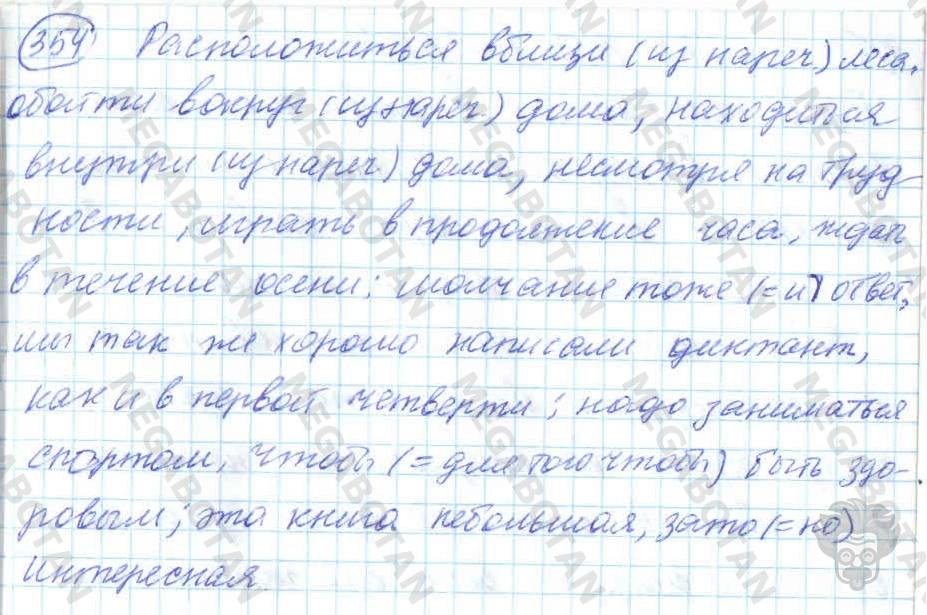 354 Расположиться вблизи (из нареч.) леса,
обойти вокруг (из нареч.) дома, находиться
внутри (из нареч) дома, несмотря на труд-
ности, играть в продолжение часа, ждать
в течение осени; молчание тоже (= и) ответ,
мы так же хорошо написали диктант,
как и в первой четверти; надо заниматься
спортом, чтобы (= для того чтобы) быть здо-
ровым; эта книга небольшая, зато (= но)
интересная
MEGABOTAN